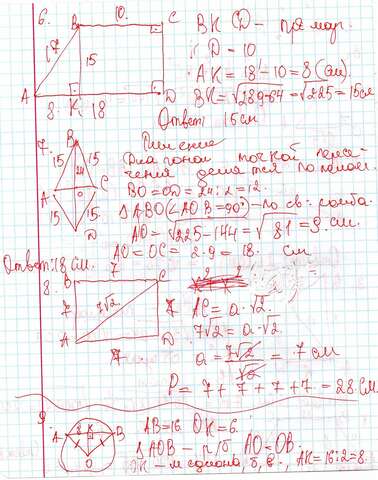 6.
10.
B C
17 15
A 8 K 18 D
ВК CD – прямоуг.
CD = 10
AK = 18 - 10 = 8 (см)
BK = √289-64 = √225 = 15см
Ответ: 15см
7.
B
15 15
24
A O C
15 15
D
Решение
Диагонали точкой пересе-
чения делятся пополам.
BO = OD = 24:2 = 12.
ΔABO (∠AOB = 90°) - по св. ромба.
AO = √225 - 144 = √81 = 9 см.
AO = OC = 2·9 = 18. см
Ответ: 18 см.
8.
7
B C
7 7√2 7
A D
7
AC = a·√2.
7√2 = a·√2.
a = 7√2/√2 = 7 см
P = 7 + 7 + 7 + 7 = 28 см
9
A 8 K B
O
AB=16 OK=6.
ΔAOB – р/б AO=OB.
OK – медиана, б, в., AK=16:2=8.